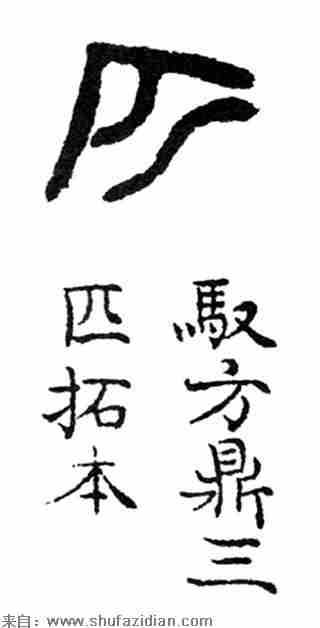 匹
馭方鼎三
匹拓本
来自：www.shufazidian.com